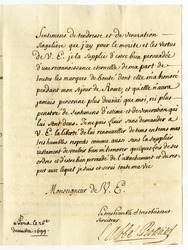 Sentimens de tendresse et de Veneration
Singuliere que j'ay pour le merite et les Vertus
de V. E. je la Supplie d'estre bien persuadée
d'une reconnoissance eternelle de ma part de
toutes les marques de bonté dont elle m'a honoré
pendant mon Sejour de Rome, et qu'elle n'aura
jamais personne plus devoüé que moi, ni plus
penetré de sentimens d'estime et de Veneration qui
luy sont deus. Je ne puis finir sans demander a
V. E. la liberté de luy renouveller de tems en tems mes
tres humbles respects comme aussi sans la supplier
instamment de vouloir bien m'honorer quelques fois de ses
ordres et d'estre bien persuadé de l'attachement et du respect
avec lequel je suis et serai toute ma vie.
Monseigneur de V. E.
Le tres humble et tres obeissant
Serviteur
a Paris le 28e
decembre 1699.